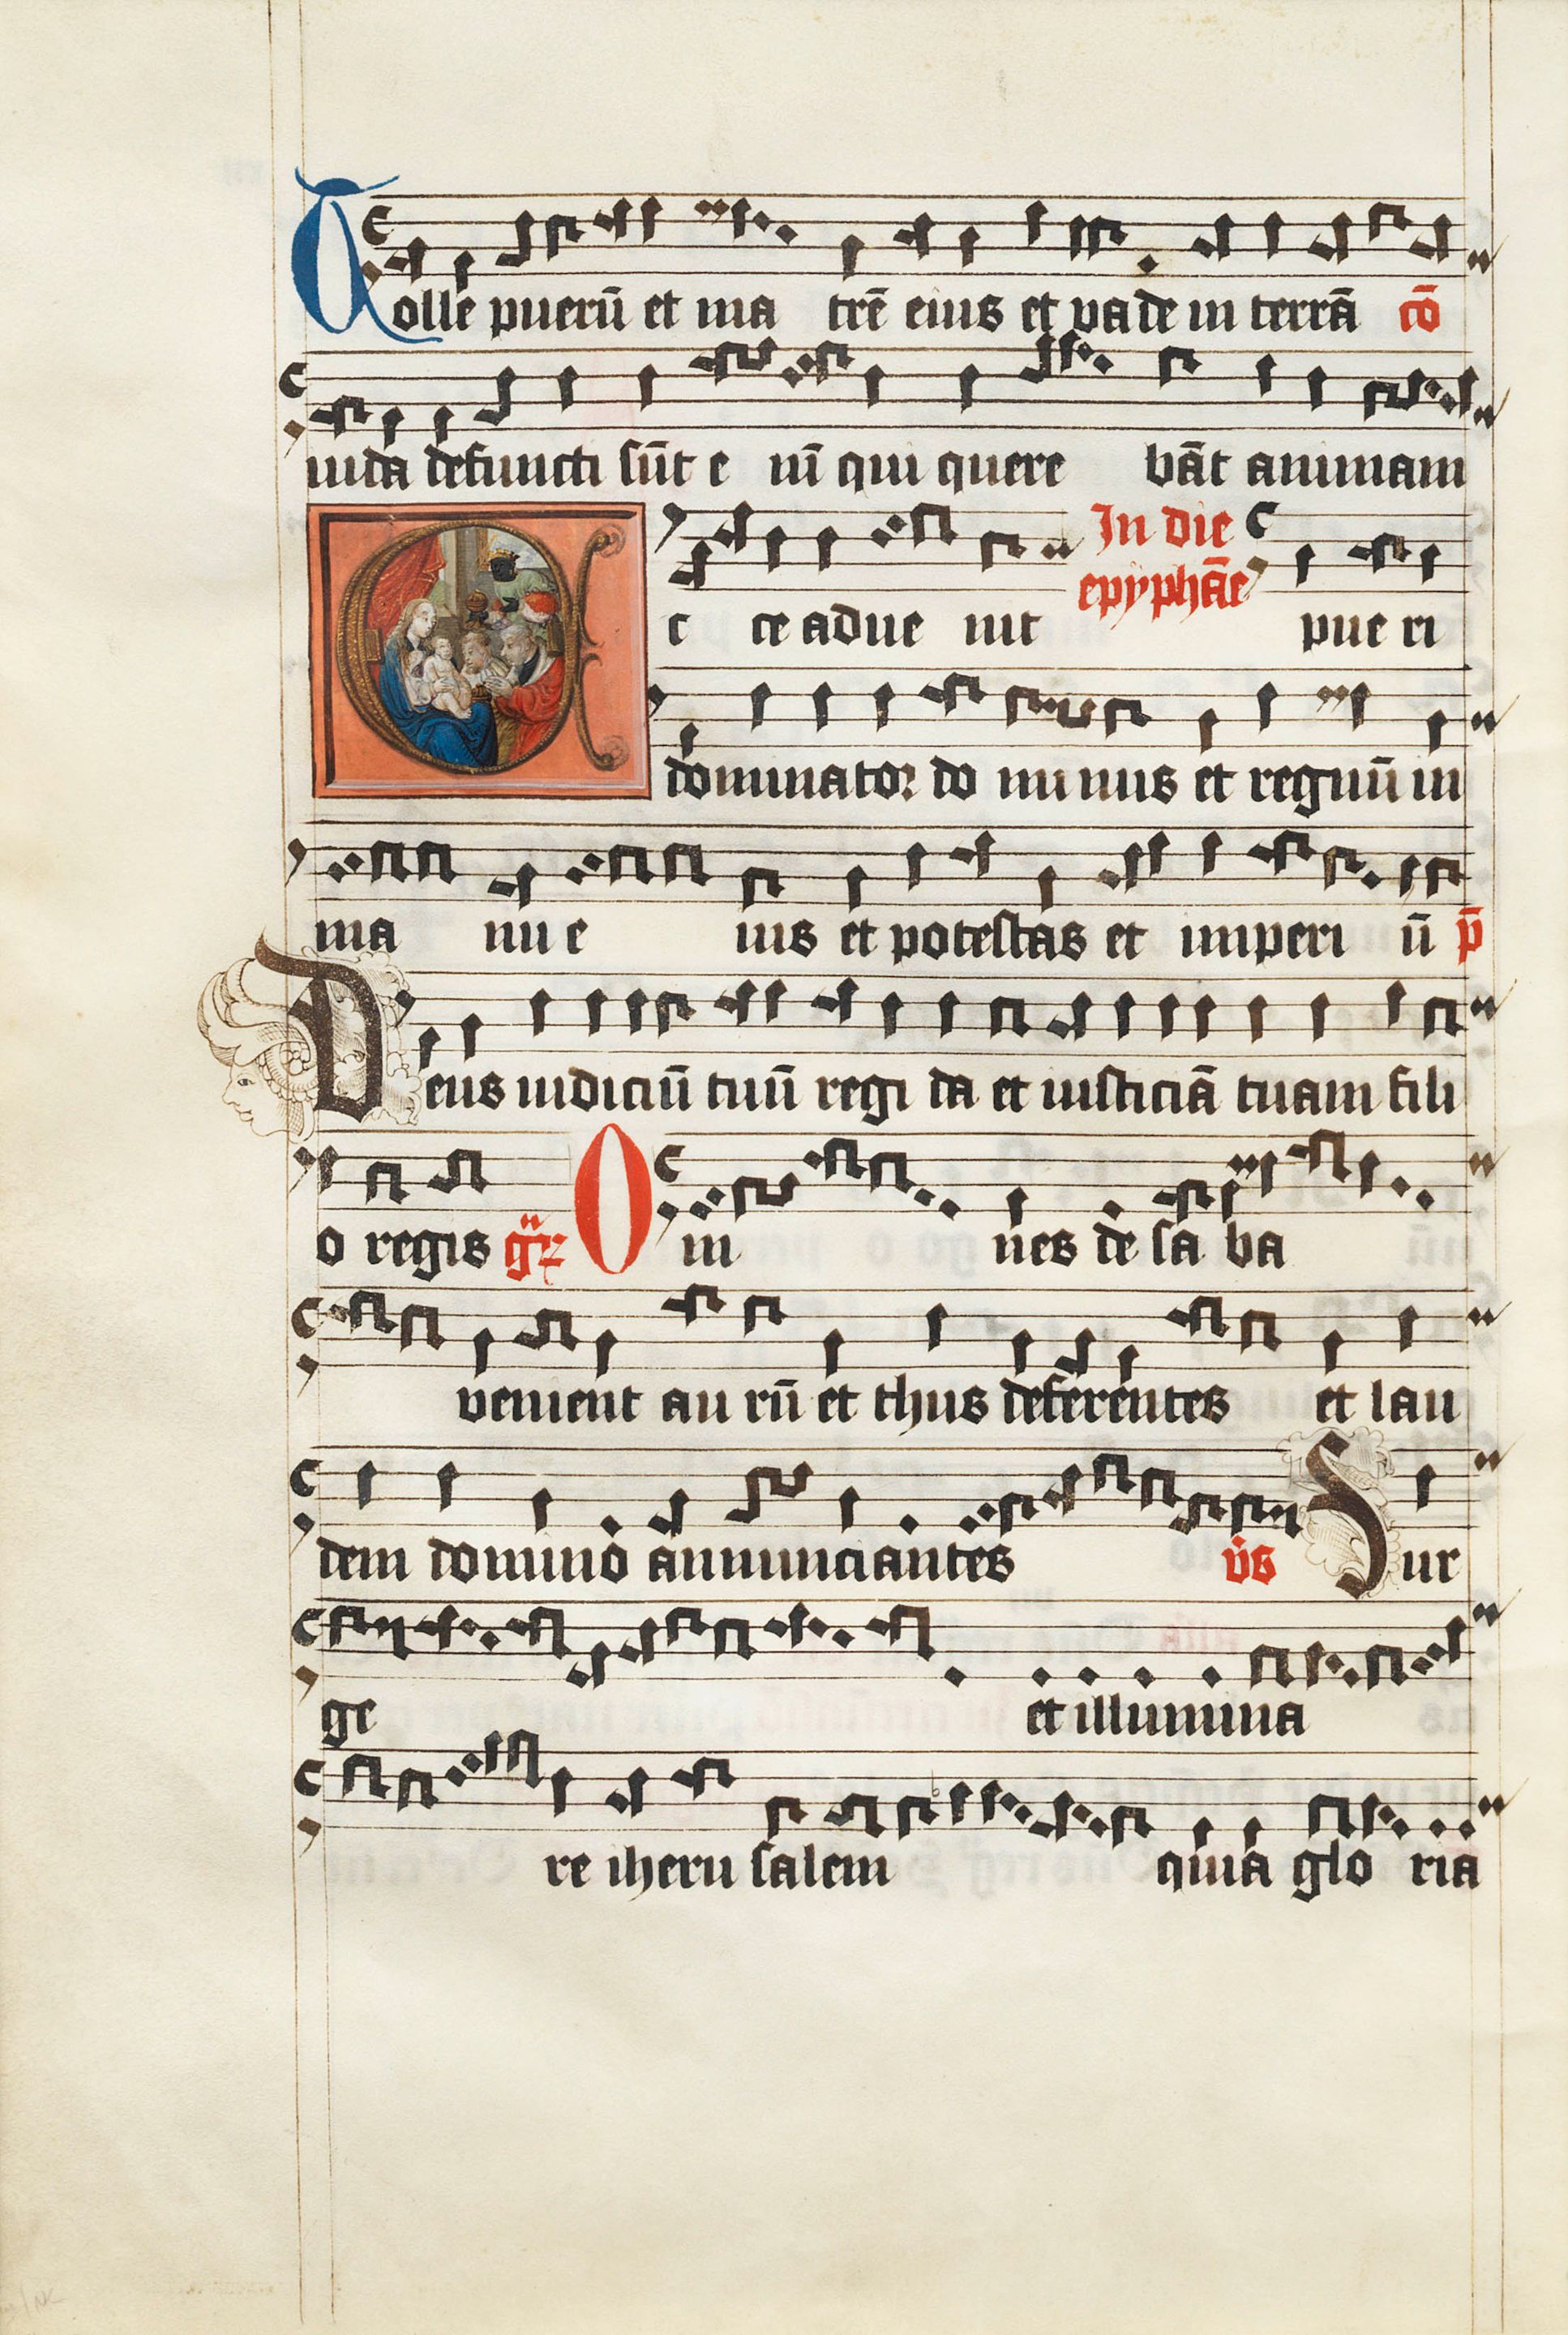 Tolle puerū et ma trē eius et vade in terrā cō
iuda defuncti sūt e nī qui quere bāt animam
In die
epyphāe
E c ce adue nit pue ri
dominator do minus et regnū in
ma nu e ius et potestas et imperi ū p̄
Deus iudiciū tuū regi da et iusticiā tuam fili
o regis gr̈ Om nes de sa ba
venient au rū et thus deferentes et lau
dem domino annunciantes v̄s Sur
ge et illumina
re iheru salem quia glo ria